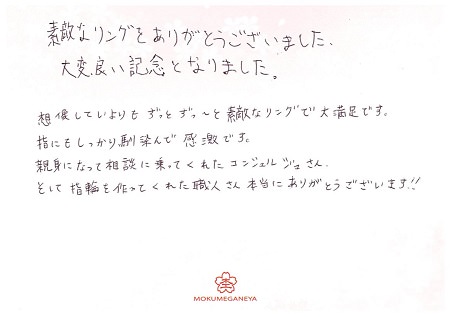 素敵なリングをありがとうございました。
大変良い記念となりました。
想像していよりもずっとずっ〜と素敵なリングで大満足です。
指にもしっかり馴染んで感激です。
親身になって相談に乗ってくれたコンシェルジュさん、
そして指輪を作ってくれた職人さん本当にありがとうございます!!
MOKUMEGANEYA